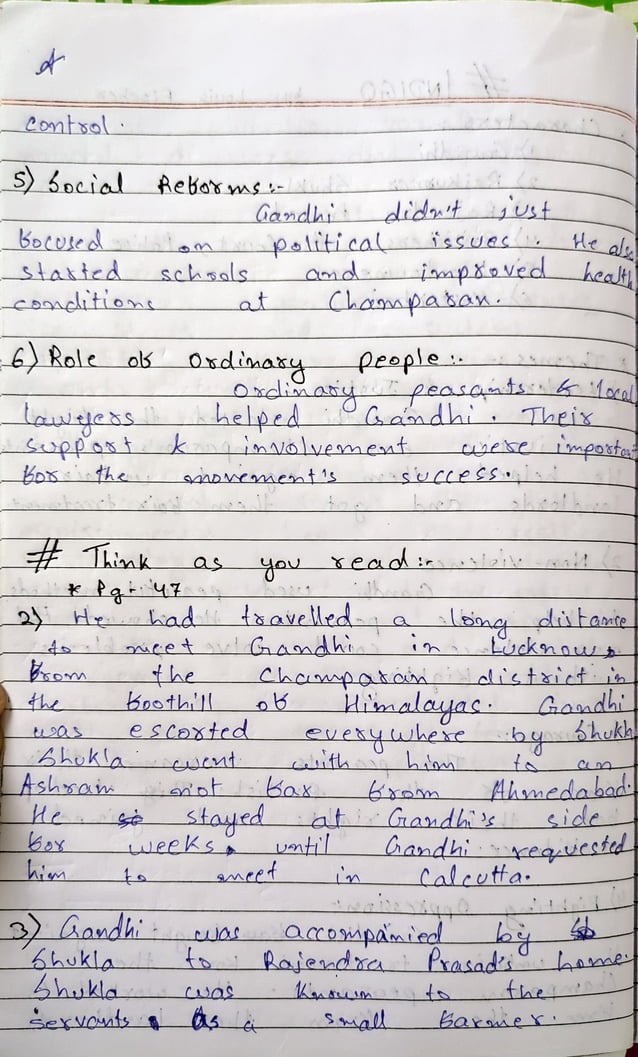 control.
5) Social Reforms :-
Gandhi didn't just
focused on political issues. He also
started schools and improved health
conditions at Champaran.
6) Role of Ordinary people :-
Ordinary peasants & local
lawyers helped Gandhi. Their
support & involvement were important
for the movement's success.
# Think as you read :-
* Pg - 47
2) He had travelled a long distance
to meet Gandhi in Lucknow,
from the Champaran district in
the foothill of Himalayas. Gandhi
was escorted everywhere by Shukla
Shukla went with him to an
Ashram not far from Ahmedabad.
He stayed at Gandhi's side
for weeks, until Gandhi requested
him to meet in Calcutta.
3) Gandhi was accompanied by
Shukla to Rajendra Prasad's home.
Shukla was known to the
servants As a small farmer.